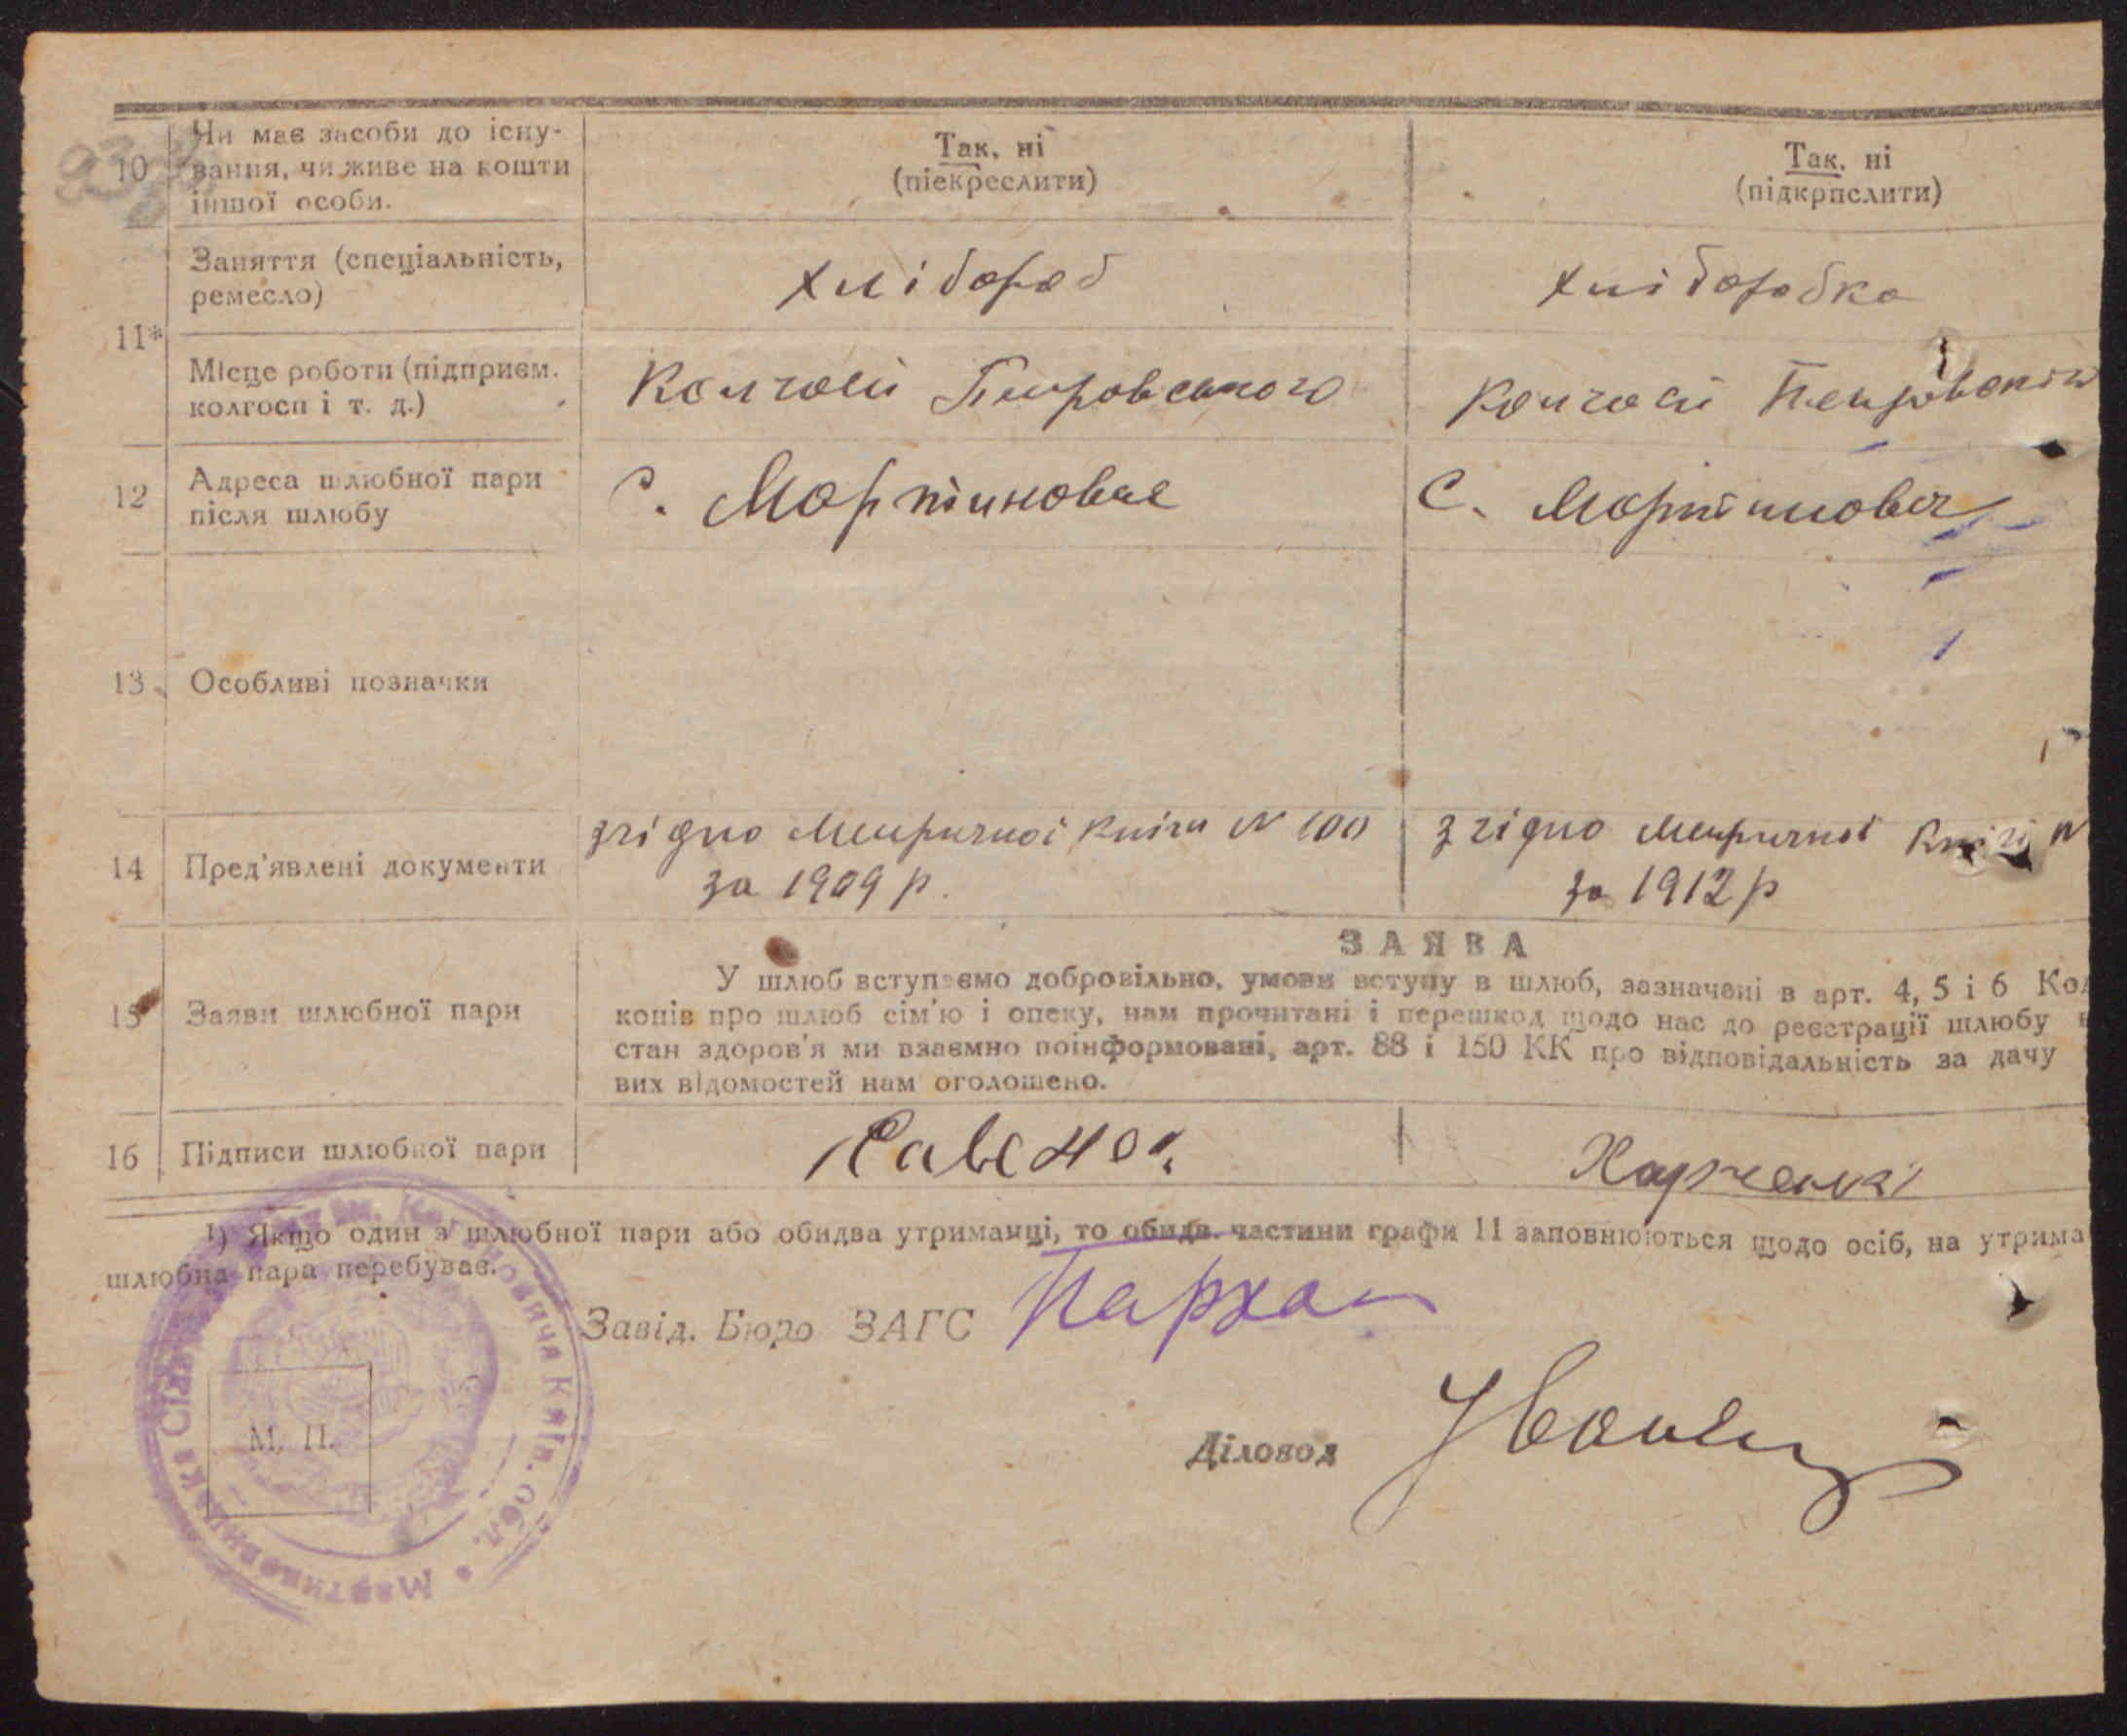 10 Чи має засоби до існу-
вання, чи живе на кошти
іншої особи.
Так, ні
(піекреслити)
Так, ні
(підкрпслити)
11* Заняття (спеціальність,
ремесло)
хлібороб
хліборобка
Місце роботи (підприєм.
колгосп і т. д.)
Колгосп Петровського
Колгосп Петровського
12 Адреса шлюбної пари
після шлюбу
с. Мартиновка
с. Мартиновка
13 Особливі позначки
14 Пред'явлені документи
згідно Метричної книги N 100
за 1909 р.
згідно Метричної книги N
за 1912 р
15 Заяви шлюбної пари
ЗАЯВА
У шлюб вступаємо добровільно, умови вступу в шлюб, зазначені в арт. 4, 5 і 6 Код
конів про шлюб сім'ю і опеку, нам прочитані і перешкод щодо нас до реєстрації шлюбу н
стан здоров'я ми взаємно поінформовані, арт. 88 і 150 КК про відповідальність за дачу
вих відомостей нам оголошено.
16 Підписи шлюбної пари
Харченкі
1) Якщо один з шлюбної пари або обидва утриманці, то обидв. частини графи 11 заповнюються щодо осіб, на утрима
шлюбна пара перебуває.
Завід. Бюро ЗАГС Пархом
Діловод
М. П.
Кагановича Київ. обл. • Мартинівська Сіль